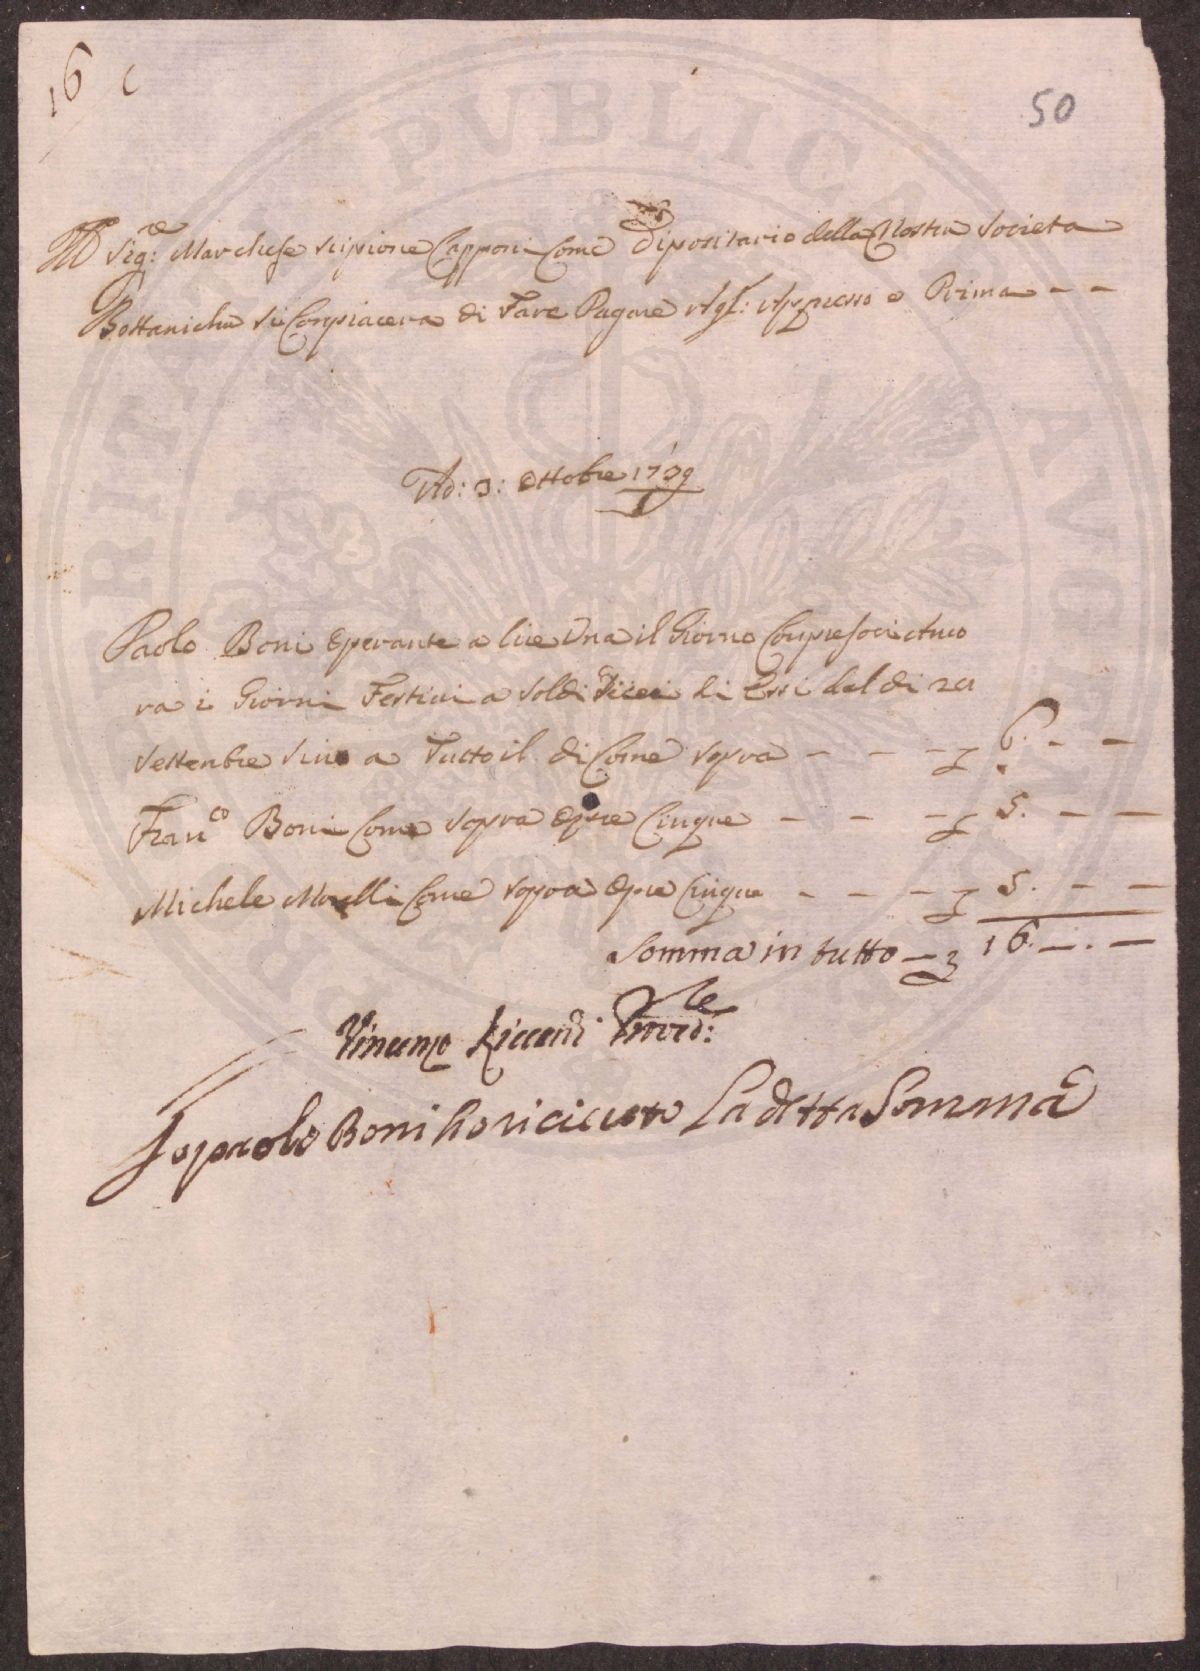 16 C
50
Ill Sig:re Marchese Scipione Capponi Come Dipositario della Nostra Societa
Bottanicha Si Conpiacera di Fare Pagare Agl: Appresso e Prima - -
Ad: 3: Ottobre 1739
Paolo Boni Operante a lire Una il Giorno Conpresoci Anco
ra i Giorni Festivi a Soldi Dieci di Essi dal di
Settenbre Sino a Tutto il di Come Sopra - - - 6. - -
Fran:co Boni Come Sopra Opre Cinque - - - 5. - -
Michele Morelli Come Sopra Opre Cinque - - - 5. - -
Somma in tutto - 16. - . -
Vincenzo Riccardi Proved:re
Io paolo Boni ho riceuto La detta Somma
PVBLICA